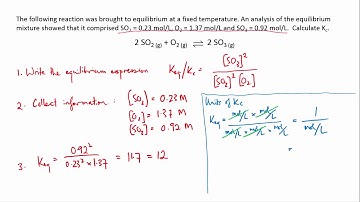 The following reaction was brought to equilibrium at a fixed temperature. An analysis of the equilibrium
mixture showed that it comprised SO₂ = 0.23 mol/L, O₂ = 1.37 mol/L and SO₃ = 0.92 mol/L. Calculate Kc.
2 SO₂ (g) + O₂ (g) ⇌ 2 SO₃ (g)
1. Write the equilibrium expression Keq/Kc = [SO₃]² / [SO₂]² [O₂]
2. Collect information : [SO₂] = 0.23 M
[O₂] = 1.37 M
[SO₃] = 0.92 M
3. Keq = 0.92² / 0.23² × 1.37 = 11.7 = 12
Units of Kc
Keq = mol/L × mol/L / mol/L × mol/L × mol/L = 1 / mol/L
=